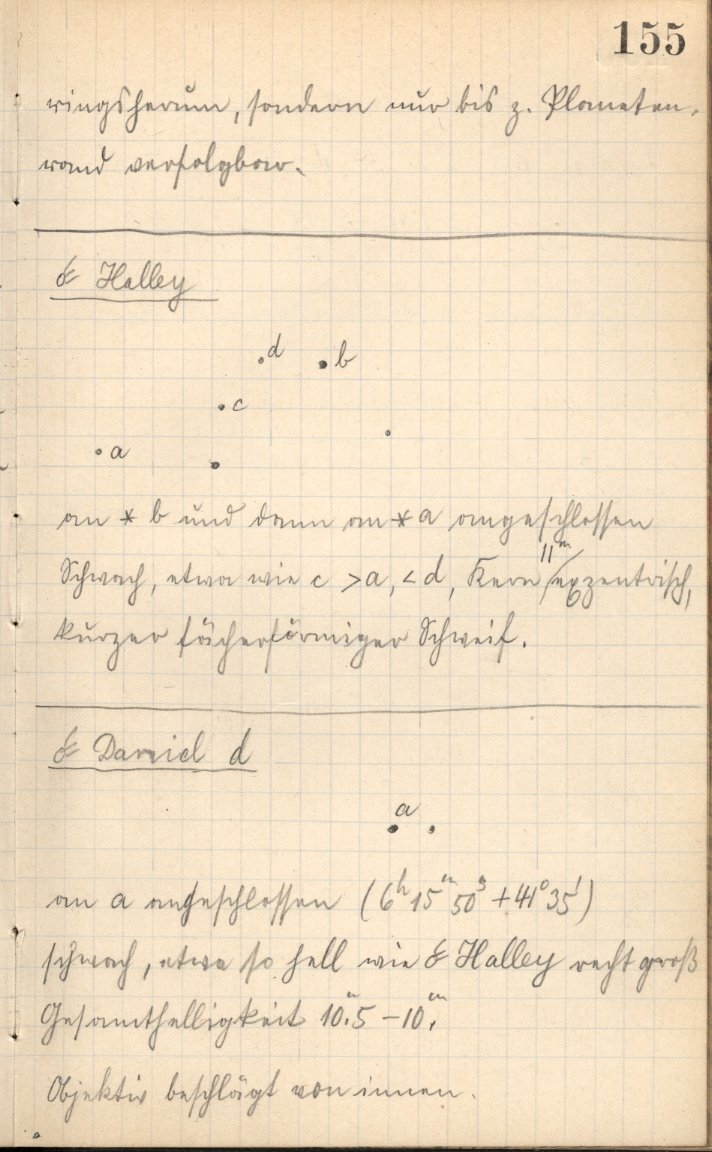 155
ringsherum, sondern nur bis z. Planeten-
rand verfolgbar.
☄ Halley
d b
c
a
an * b und dann an * a angeschlossen
Schwach, etwa wie c > a, < d, Kern 11ᵐ exzentrisch,
kurzer fächerförmiger Schweif.
☄ Daniel d
a
an a angeschlossen (6ʰ 15ᵐ 50ˢ + 41° 35')
schwach, etwa so hell wie ☄ Halley recht groß
Gesamthelligkeit 10ᵐ.5 – 10ᵐ.
Objektiv beschlägt von innen.